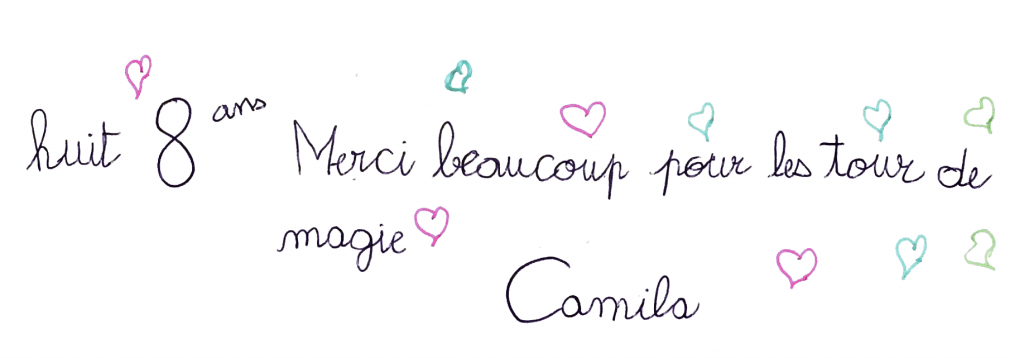 huit 8 ans Merci beaucoup pour les tour de
magie
Camila